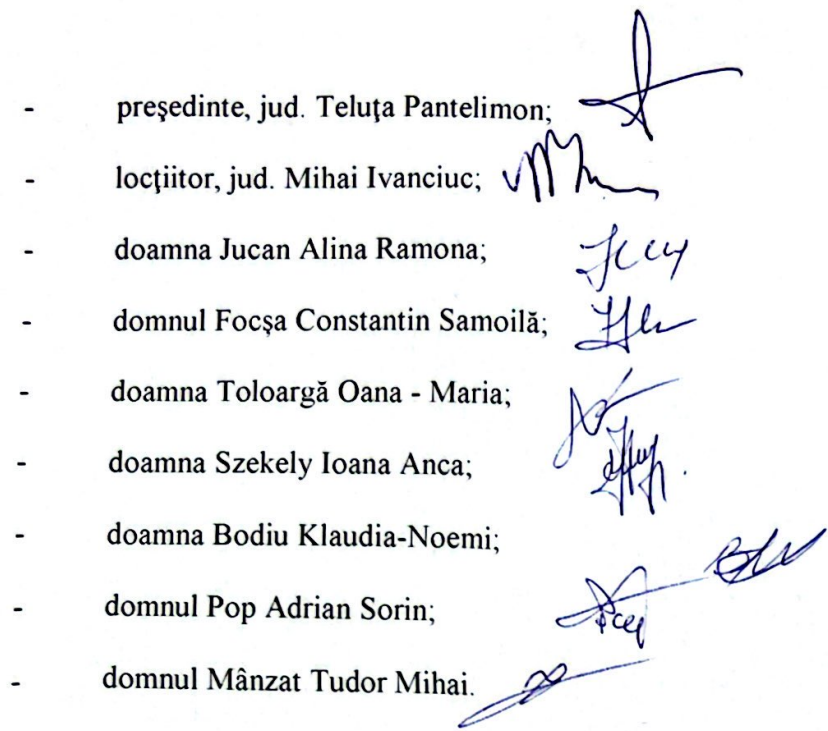 - președinte, jud. Teluța Pantelimon;
- locțiitor, jud. Mihai Ivanciuc;
- doamna Jucan Alina Ramona;
- domnul Focșa Constantin Samoilă;
- doamna Toloargă Oana - Maria;
- doamna Szekely Ioana Anca;
- doamna Bodiu Klaudia-Noemi;
- domnul Pop Adrian Sorin;
- domnul Mânzat Tudor Mihai.